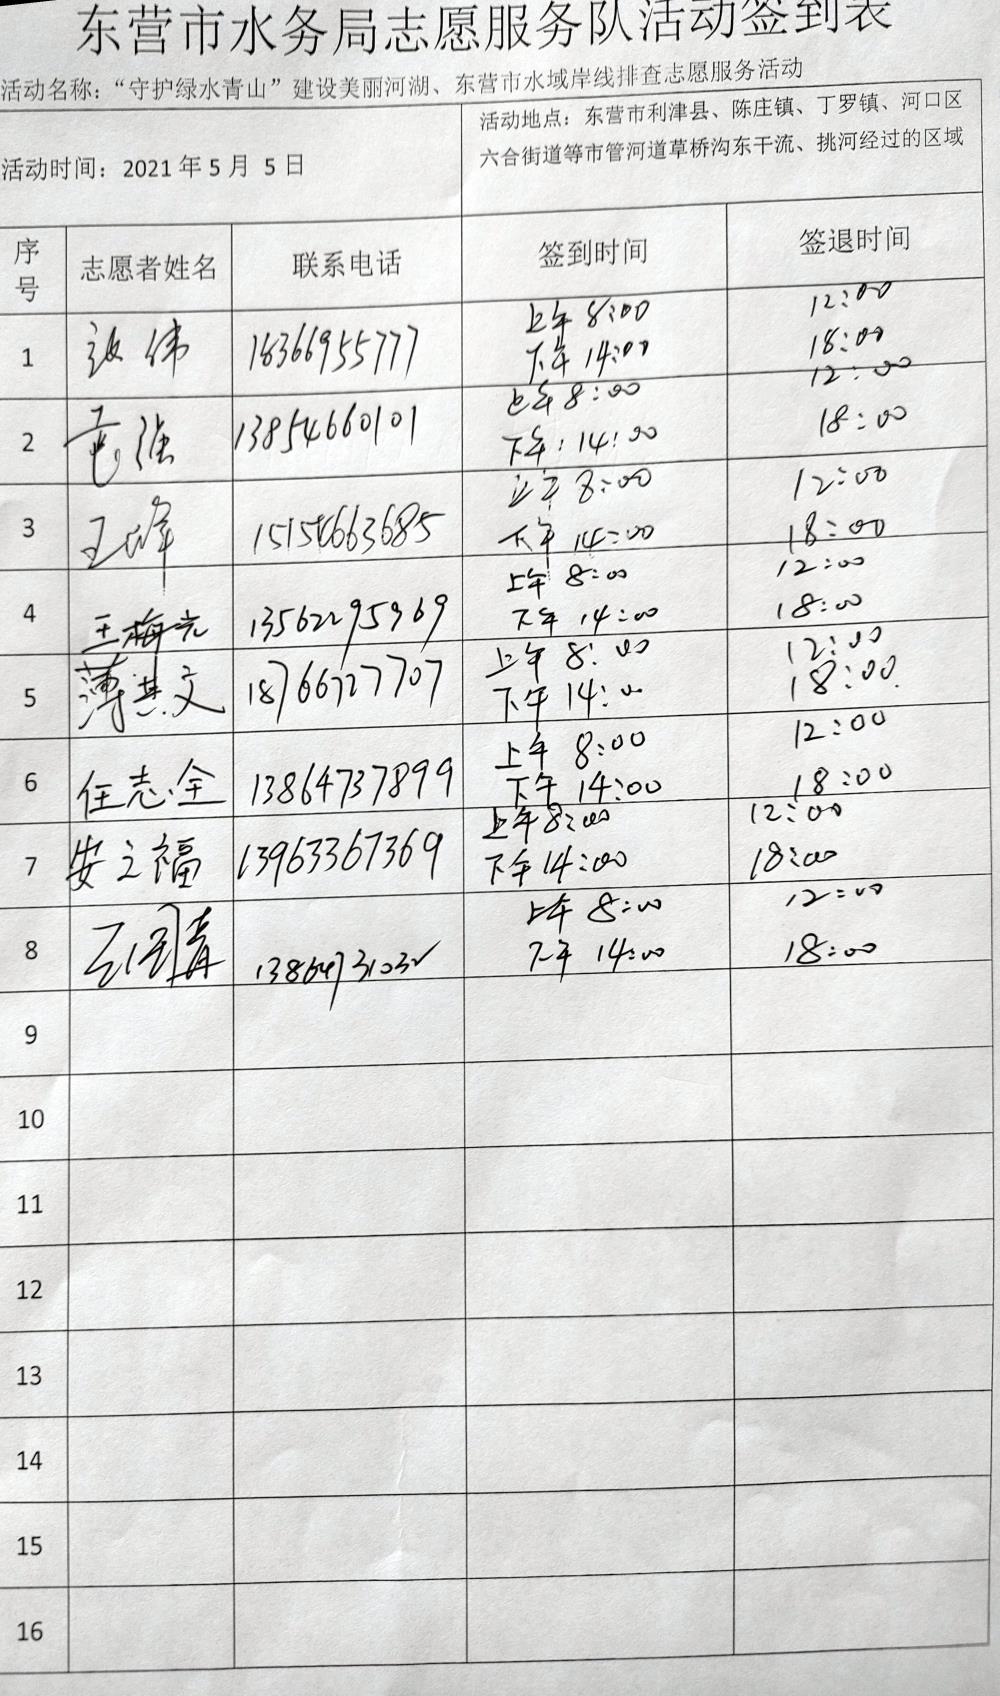 东营市水务局志愿服务队活动签到表
活动名称：“守护绿水青山”建设美丽河湖、东营市水域岸线排查志愿服务活动
活动时间：2021 年 5 月 5 日
活动地点：东营市利津县、陈庄镇、丁罗镇、河口区
六合街道等市管河道草桥沟东干流、挑河经过的区域
序号 志愿者姓名 联系电话 签到时间 签退时间
1 张伟 18366955777 上午 8:00 12:00
下午 14:00 18:00
2 强 13854660101 上午 8:00 12:00
下午：14:00 18:00
3 王峰 15154663685 上午 8:00 12:00
下午 14:00 18:00
4 王梅元 13562295969 上午 8:00 12:00
下午 14:00 18:00
5 薄其文 18766727707 上午 8:00 12:00
下午 14:00 18:00
6 任志全 13864737899 上午 8:00 12:00
下午 14:00 18:00
7 安之福 13963367369 上午 8:00 12:00
下午 14:00 18:00
8 上午 8:00 12:00
下午 14:00 18:00
9
10
11
12
13
14
15
16